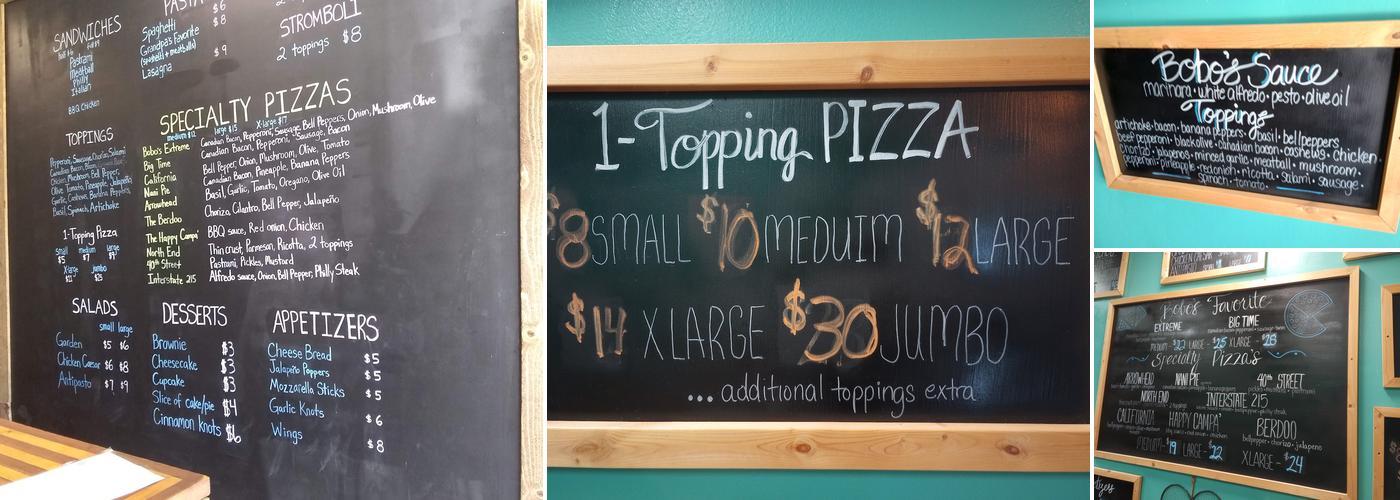 SANDWICHES
half $6 full $9
Pastrami
Meatball
Philly
Italian
BBQ Chicken
PASTA
Spaghetti $6
Grandpa's Favorite $8
(spaghetti + meatballs)
Lasagna $9
STROMBOLI
2 toppings $8
SPECIALTY PIZZAS
medium $12 large $15 X-large $17
Bobo's Extreme Canadian Bacon, Pepperoni, Sausage, Bell Peppers, Onion, Mushroom, Olive
Big Time Canadian Bacon, Pepperoni, Sausage, Bacon
California Bell Pepper, Onion, Mushroom, Olive, Tomato
Nani Pie Canadian Bacon, Pineapple, Banana Peppers
Arrowhead Basil, Garlic, Tomato, Oregano, Olive Oil
The Berdoo Chorizo, Cilantro, Bell Pepper, Jalapeño
The Happy Campa' BBQ sauce, Red onion, Chicken
North End Thin crust, Parmesan, Ricotta, 2 toppings
40th Street Pastrami, Pickles, Mustard
Interstate 215 Alfredo sauce, Onion, Bell Pepper, Philly Steak
TOPPINGS
Pepperoni, Sausage, Chorizo, Salami
Canadian Bacon,
Chicken, Mushroom, Bell Pepper,
Olive, Tomato, Pineapple, Jalapeño
Garlic, Cashews, Banana Peppers,
Basil, Spinach, Artichoke
1-Topping Pizza
small medium large
$5 $7 $9
X-large jumbo
$11 $25
SALADS
small large
Garden $5 $6
Chicken Caesar $6 $8
Antipasto $7 $9
DESSERTS
Brownie $3
Cheesecake $3
Cupcake $3
Slice of cake/pie $4
Cinnamon knots $6
APPETIZERS
Cheese Bread $5
Jalapeño Poppers $5
Mozzarella Sticks $5
Garlic Knots $6
Wings $8
1-Topping PIZZA
$8 SMALL $10 MEDUIM $12 LARGE
$14 XLARGE $30 JUMBO
... additional toppings extra
Bobo's Sauce
marinara • white alfredo • pesto • olive oil
Toppings
artichoke • bacon • banana peppers • basil • bell peppers
beef pepperoni • black olive • canadian bacon • cashews • chicken •
chorizo • jalapenos • minced garlic • meatball • mushroom •
pepperoni • pineapple • red onion • ricotta • salami • sausage •
spinach • tomato •
Bobo's Favorite
EXTREME BIG TIME
MEDIUM - $22 LARGE - $25 XLARGE - $28
Specialty Pizza's
ARROWHEAD NANI PIE 40th STREET
NORTH END INTERSTATE 215
CALIFORNIA HAPPY CAMPA' BERDOO
bellpepper • chorizo • jalapeno
MEDIUM - $19 LARGE - $22 XLARGE - $24